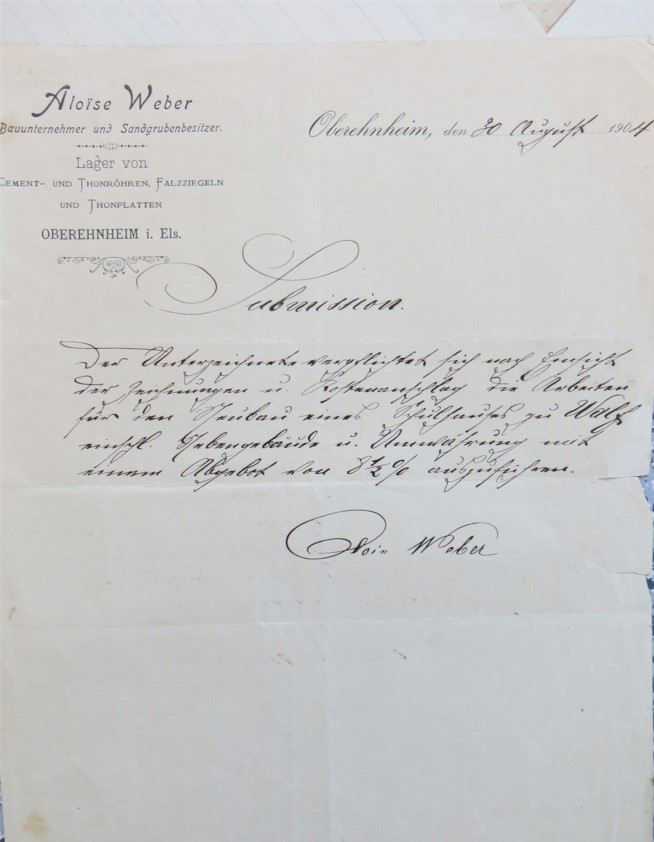 Aloïse Weber
Bauunternehmer und Sandgrubenbesitzer.
Lager von
Cement- und Thonröhren, Falzziegeln
und Thonplatten
OBEREHNHEIM i. Els.
Oberehnheim, den 20 August 1904
Submission.
Der Unterzeichnete verpflichtet sich nach Einsicht
der Zeichnungen u. Kostenanschlag die Arbeiten
für den Neubau eines Schulhauses zu Walf
einschl. Nebengebäude u. Umwährung mit
einem Abgebot von 8 ½ % auszuführen.
Weber